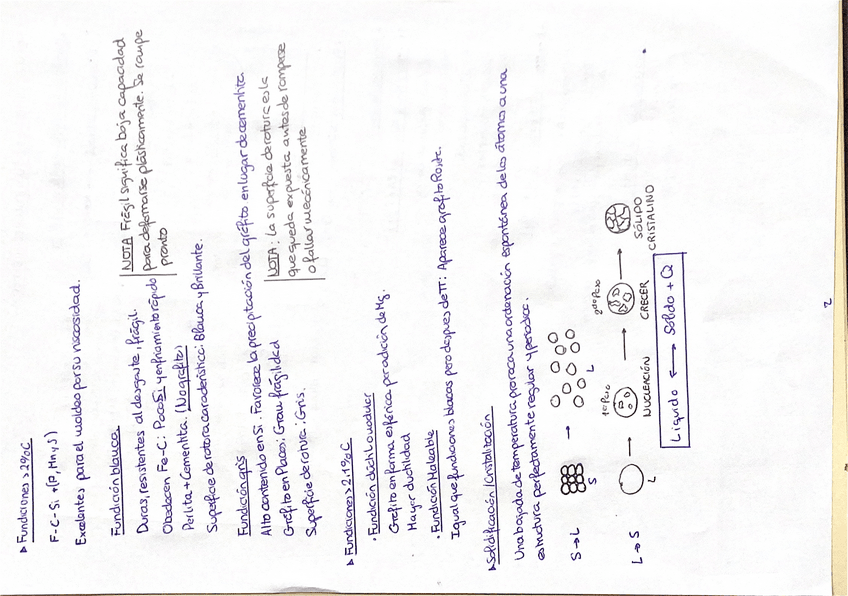 ▸ Fundiciones > 2%C
F-C-Si + (P, Mn y S)
Excelentes para el moldeo por su viscosidad.
Fundición blanca
Duras, resistentes al desgaste, frágil.
Obedecen Fe-C: Poco Si y enfriamiento rápido
Perlita + Cementita. (No grafito)
Superficie de rotura característica: Blanca y Brillante.
NOTA Frágil significa baja capacidad
para deformarse plásticamente. Se rompe
pronto
Fundición gris
Alto contenido en Si. Favorece la precipitación del grafito en lugar de cementita.
Grafito en Placas: Gran fragilidad
Superficie de rotura: Gris.
NOTA: La superficie de rotura es la
que queda expuesta antes de romperse
o fallar mecánicamente
▸ Fundiciones > 2.1%C
· Fundición dúctil o nodular
Grafito en forma esférica por adición de Mg.
Mayor ductilidad
· Fundición Maleable
Igual que fundiciones blancas pero despues de TT: Aparece grafito Rosite.
▸ Solidificación / Cristalización
Una bajada de temperatura provoca una ordenación espontánea de los átomos a una
estructura perfectamente regular y periodica.
S → L
S → L
L → S
1er Paso
2do Paso
L → NUCLEACIÓN → CRECER → SÓLIDO
CRISTALINO
Líquido ⟷ Sólido + Q
2